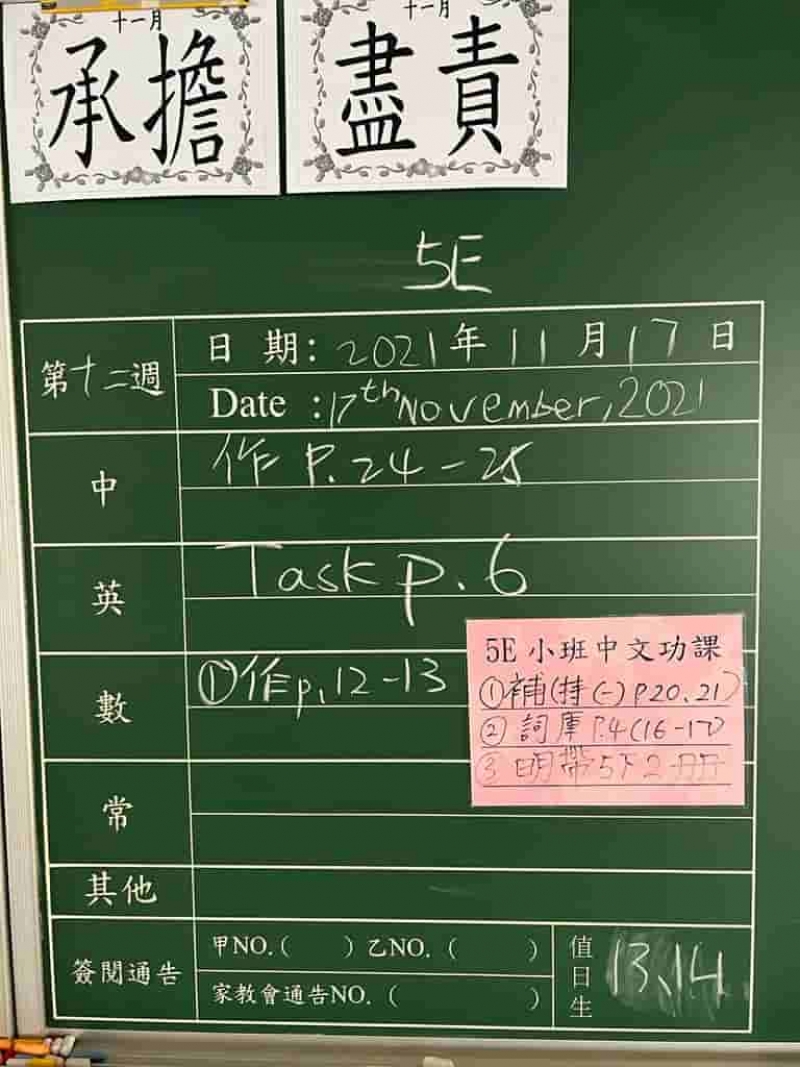 十一月
承擔
十一月
盡責
5E
第十二週
日 期：2021年11月17日
Date :17th November, 2021
中
作 P.24-25
英
Task p.6
數
①作p.12-13
5E 小班中文功課
①補(持(一) P20,21)
②詞庫 P.4(16-17)
③明帶5下2冊
常
其他
簽閱通告
甲NO.( ) 乙NO. ( )
家教會通告NO. ( )
值日生
13,14